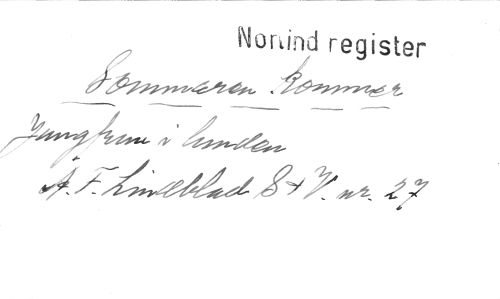 Norlind register
Sommaren kommer
Jungfrun i lunden
A. F. Lindblad S+V. nr. 27